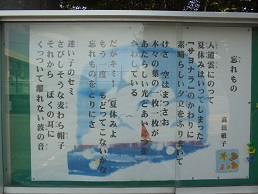 忘れもの
高田敏子
入道雲にのって
夏休みはいってしまった
「サヨナラ」のかわりに
素晴らしい夕立をふりまいて
けさ 空はまっさお
木々の葉の一枚一枚が
あたらしい光とあいさつを
かわしている
だがキミ！ 夏休みよ
もう一度 もどってこないかな
忘れものをとりにさ
迷い子のセミ
さびしそうな麦わら帽子
それから ぼくの耳に
くっついて離れない波の音